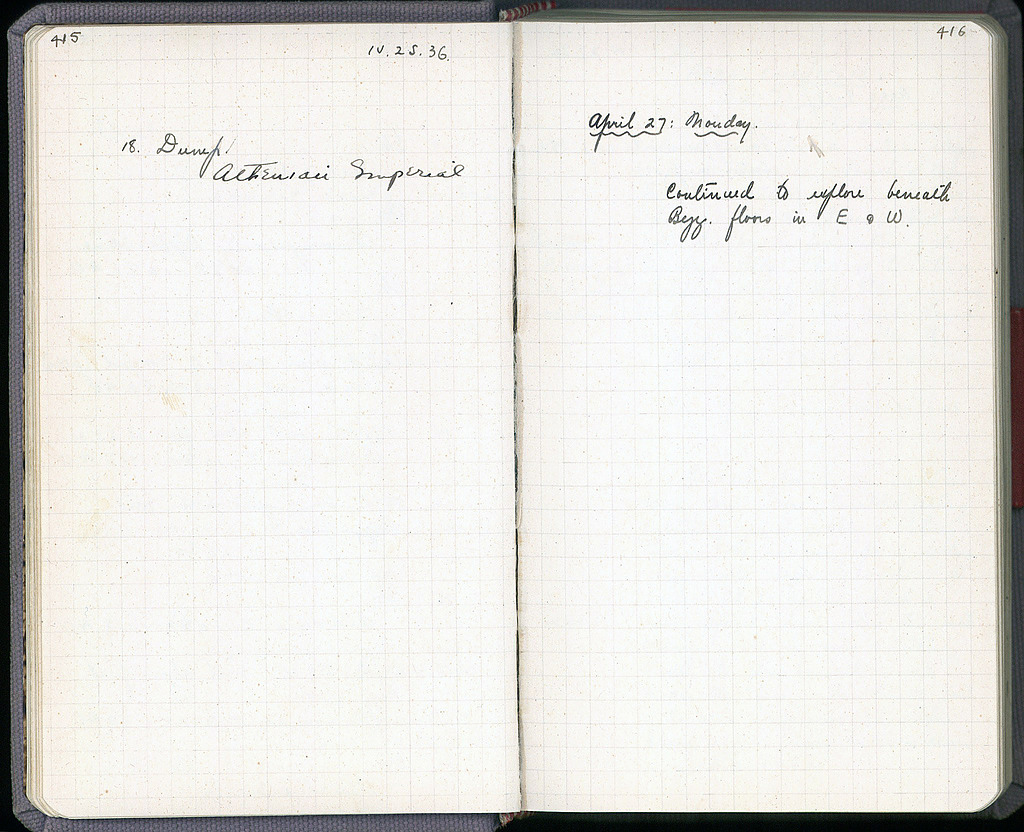 415
IV. 25. 36.
18. Dump
Athenian Imperial
416
April 27: Monday.
Continued to explore beneath
Byz. floors in E & W.